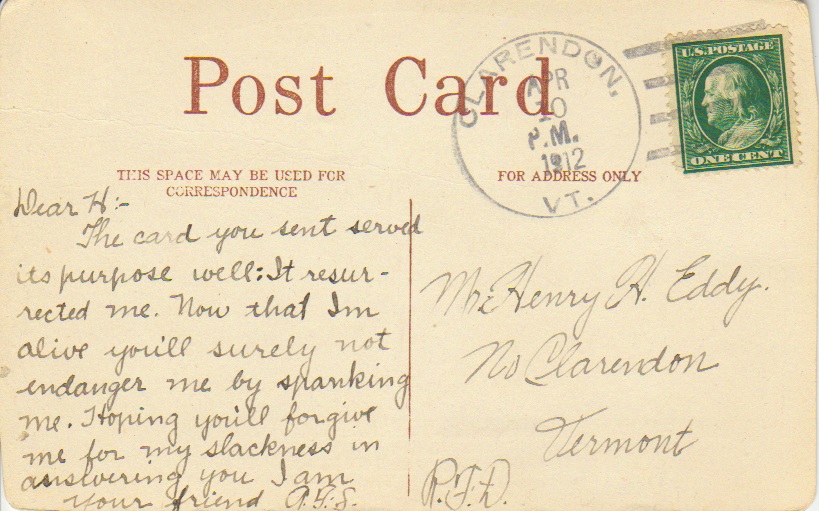 Post Card
CLARENDON,
APR
10
P.M.
1912
VT.
U.S. POSTAGE
ONE CENT
THIS SPACE MAY BE USED FOR
CORRESPONDENCE
FOR ADDRESS ONLY
Dear H:-
The card you sent served
its purpose well: It resur-
rected me. Now that Im
alive you'll surely not
endanger me by spanking
me. Hoping you'll forgive
me for my slackness in
answering you I am
your friend A.F.S.
Mr. Henry H. Eddy.
No Clarendon
Vermont
R.F.D.